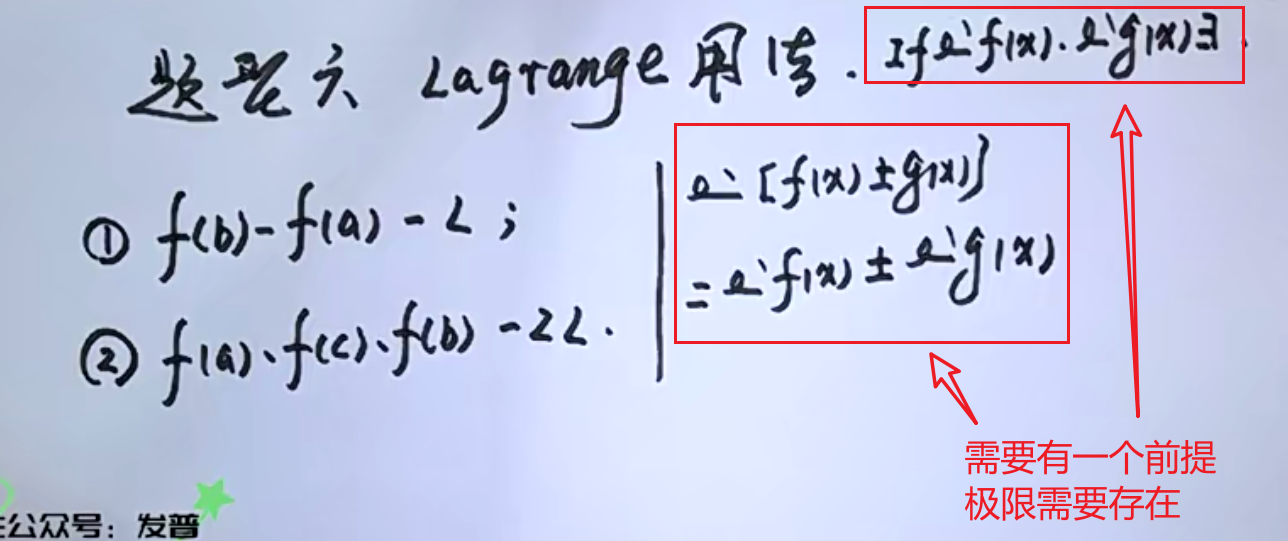 题型六 Lagrange 用法. If lim f(x). lim g(x) ∃.
① f(b)-f(a) - L ;
② f(a)、f(c)、f(b) - 2L.
lim [f(x) ± g(x)]
= lim f(x) ± lim g(x)
需要有一个前提
极限需要存在
公众号：发普